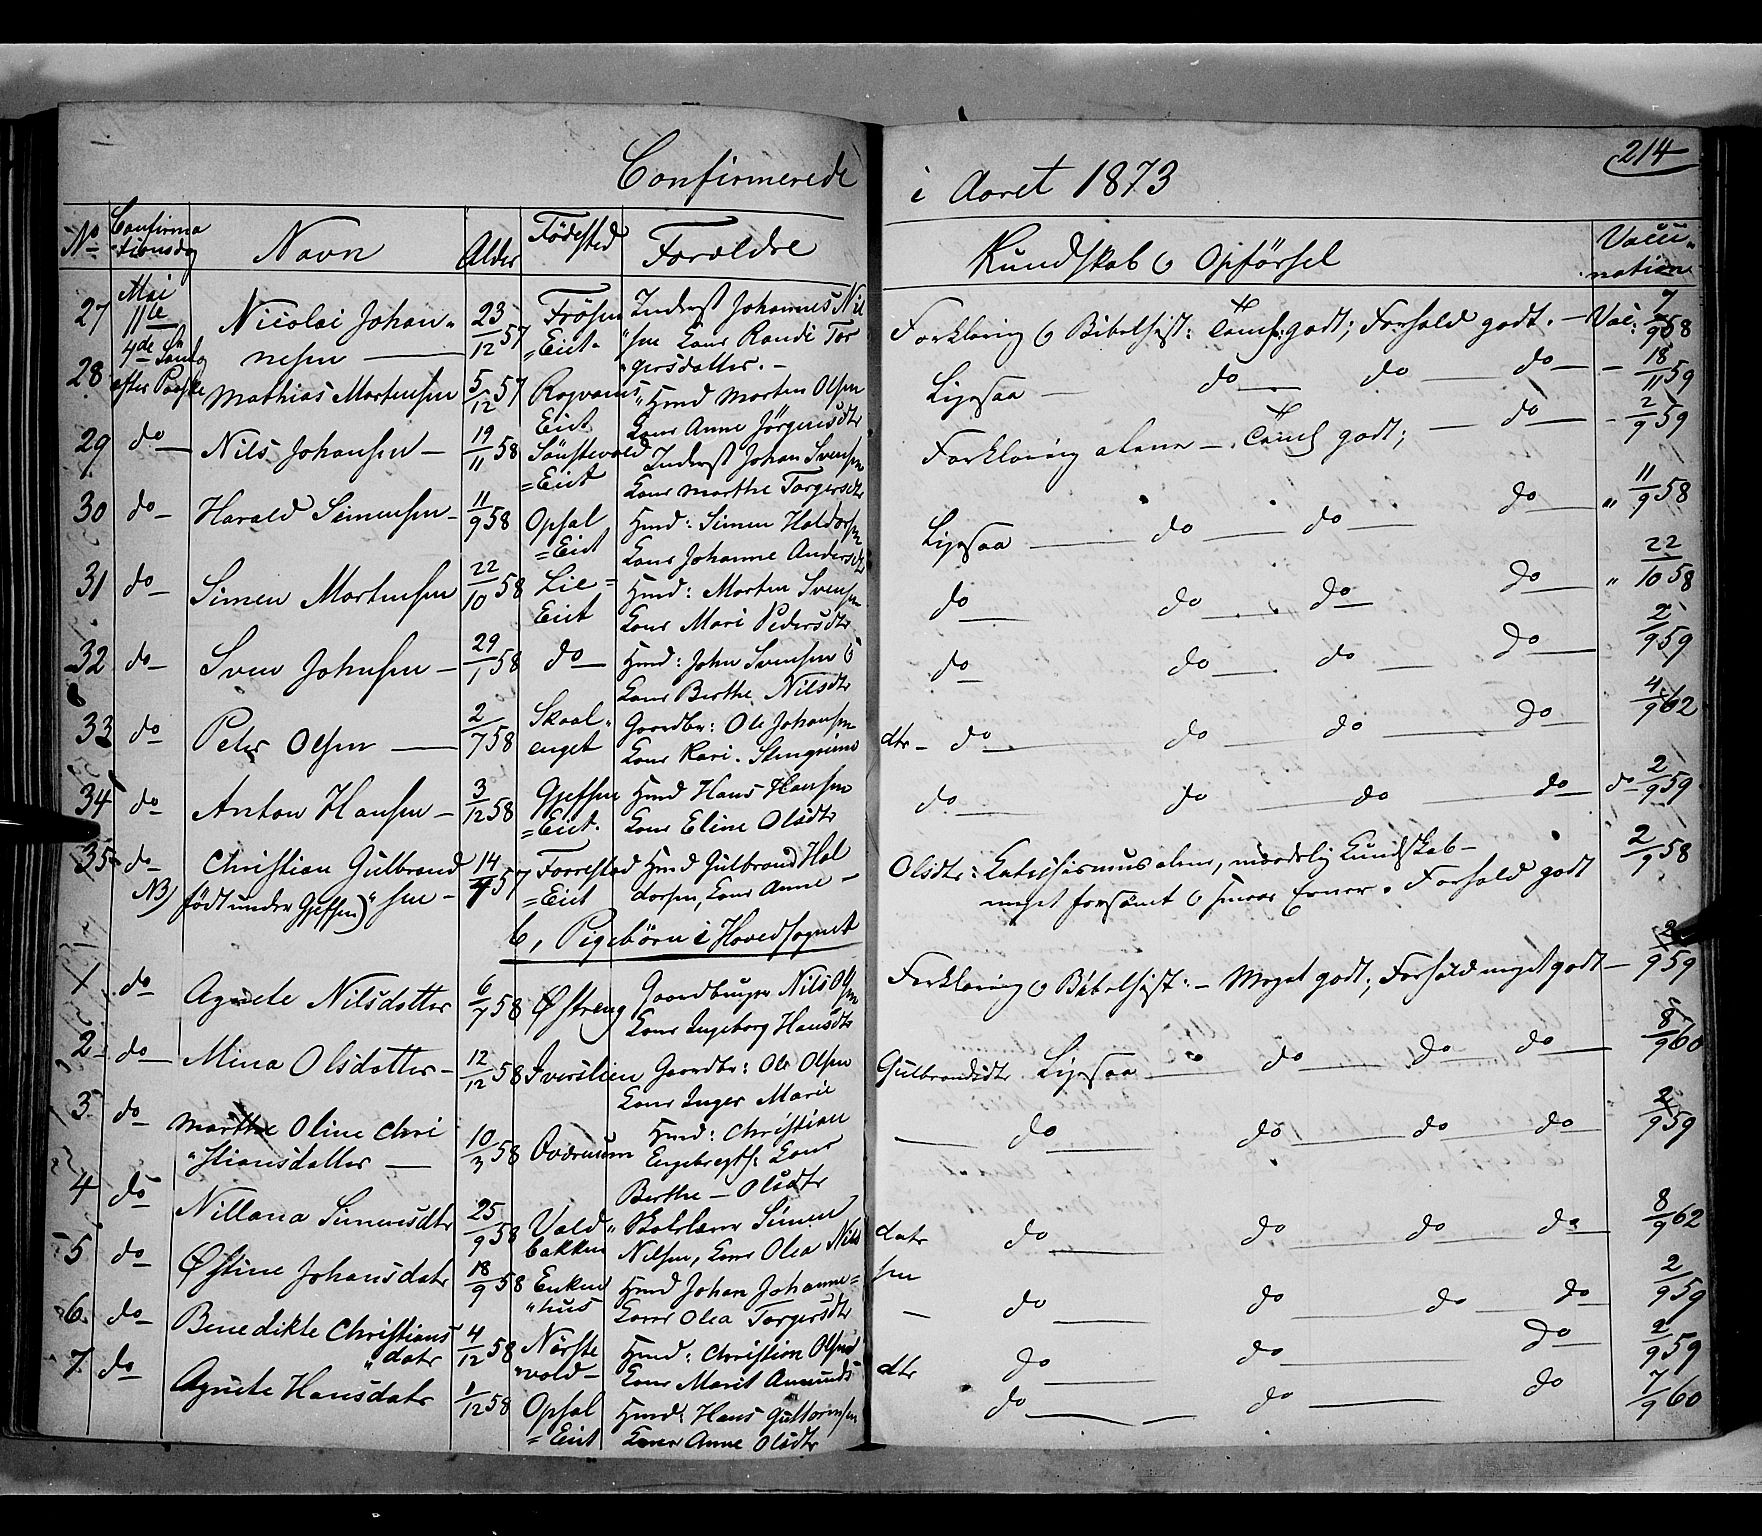 214
Confirmerede i Aaret 1873
No Confirmationsdag Navn Alder Födested Foreldre Kundskab & Opförsel Vaccination
27 Mai 11te 4de Sönd. efter Paaske Nicolai Johan- 23/12 57 Frösen Inderst Johannes Nil
nesen = Eiet. sen Kone Randi Tor
gersdatter. -
Forklaring & Bibelhist: Taml: godt; Forhold godt. - Vac: 7/9 58
28 Mathias Mortensen 5/12 57 Rognaas Hmd Morten Olsen
Eiet Kone Anne Jörgensdtr
Ligesaa - do do do - 18/11 59
29 do Nils Johansen - 19/11 58 Sönstevold Inderst Johan Svensen
= Eiet Kone Marthe Torgersdtr
Forklaring alene - Taml godt; - do - 2/9 59
30 do - Harald Simensen - 11/9 58 Opsal Hmd: Simen Haldorsen
= Eiet Kone Johanne Andersdtr
Ligesaa - do - do - do - " 11/9 58
31 do - Simen Mortensen 22/10 58 Lie = Hmd: Morten Svensen
Eiet Kone Mari Pedersdtr
do do do do " 22/10 58
32 do - Sven Johnsen - 29/1 58 do - Hmd: John Svensen &
Kone Berthe Nilsdtr
do do do do 2/9 59
33 do Peter Olsen - 2/7 58 Skaal- Gaardbr: Ole Johansen
enget Kone Kari Stengrims
dtr - do do do do 4/9 62
34 do Anton Hansen - 3/12 58 Gjefsen Hmd Hans Hansen
= Eiet. Kone Eline Olsdtr
do do do do do 2/9 59
35 do Christian Gulbrand 14/4 57 Forrestad Hmd Gulbrand Hal
NB) födt under Gjefsen) " sen - = Eiet dorsen, Kone Anne -
Olsdtr: Katechismus alene, maadelig Kundskab - 2/9 58
meget forsömt & svage Evner. Forhold godt
b, Pigebörn i Hovedsognet
1 do Agnete Nilsdatter 6/7 58 Østreng Gaardbruger Nils Olsen
Kone Ingeborg Hansdtr
Forklaring & Bibelhist: - Meget godt; Forhold meget godt - 2/9 59
2 do Mina Olsdatter - 12/12 58 Iverslien Gaardbr: Ole Olsen
Kone Inger Marie
Gulbrandsdtr Ligesaa do do do 8/9 60
3 do Marthe Oline Chri 10/3 58 Hmd: Christian
"stiansdatter - Engebregts: Kone
Berthe - Olsdtr
do do do do 2/9 59
4 do Nillana Simensdtr 25/9 58 Vold " Simen
bakken Nilsen, Kone Olea Nils
datr do do do do 8/9 62
5 do Østine Johansdatr 18/9 58 Enken Hmd Johan Johanne=
"hus Kone Olea Torgersdtr
sen - do do do do 2/9 59
6 do - Benedikte Christians 4/12 58 Nörste Hmd: Christian Olsen
" datr "vold - Kone Marit Amunds
dtr do do do 2/9 59
7 do Agnete Hansdatr 1/12 58 Opsal Hmd: Hans Guttormsen
= Eiet Kone Anne Olsdtr
do do do 7/9 60